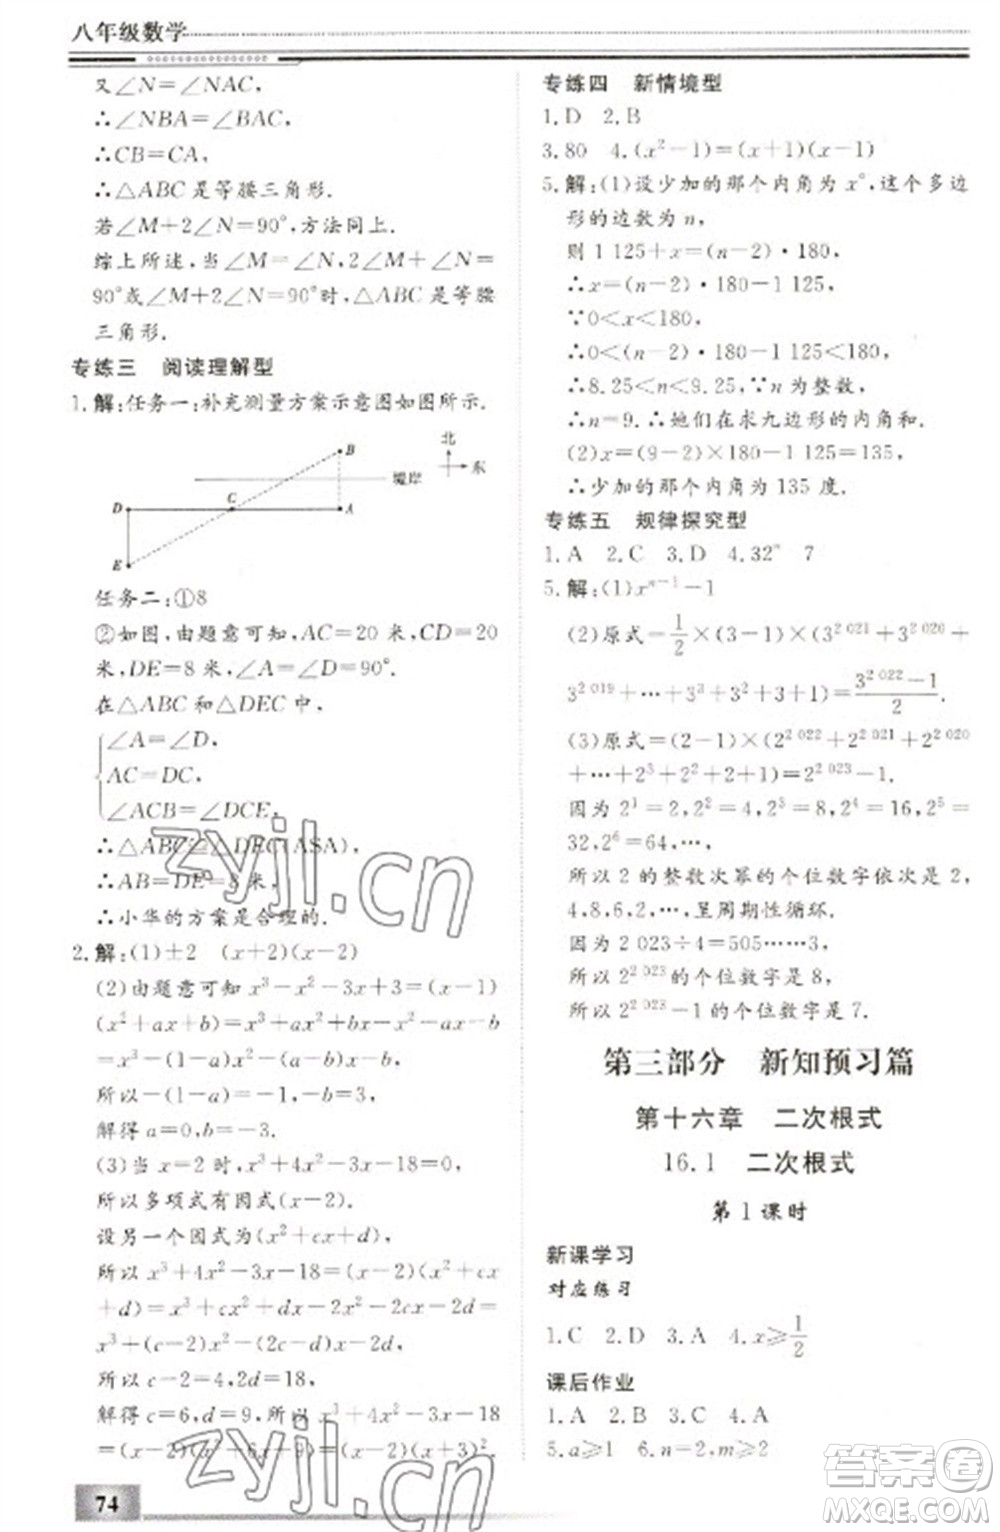 八年级数学
又∠N=∠NAC,
∴∠NBA=∠BAC,
∴CB=CA,
∴△ABC是等腰三角形.
若∠M+2∠N=90°,方法同上.
综上所述,当∠M=∠N=
90°或∠M+2∠N=90°时,△ABC是等腰
三角形.
专练三 阅读理解型
1.解:任务一:补充测量方案示意图如图所示.
B
北
东
堤岸
D
C
A
E
任务二:①8
②如图,由题意可知,AC=20米,CD=20
米,DE=8米,∠A=∠D=90°.
在△ABC和△DEC中,
∠A=∠D,
AC=DC,
∠ACB=∠DCE,
∴△ABC≌△DEC(ASA),
∴AB=DE=8米,
∴小华的方案是合理的.
2.解:(1)±2 (x+2)(x-2)
(2)由题意可知x³-x²-3x+3=(x-1)
(x²+ax+b)=x³+ax²+bx-x²-ax-b
=x³-(1-a)x²-(a-b)x-b,
所以1-a=1,-b=3,
解得a=0,b=-3.
(3)当x=2时,x³+4x²-3x-18=0,
所以多项式有因式(x-2).
设另一个因式为(x²+cx+d),
所以x³+4x²-3x-18=(x-2)(x²+cx
+d)=x³+cx²+dx-2x²-2cx-2d=
x³+(c-2)x²+(d-2c)x-2d,
所以c-2=4,2d=18,
解得c=6,d=9,所以x³+4x²-3x-18
=(x-2)(x²+6x+9)=(x-2)(x+3)².
74
专练四 新情境型
1.D 2.B
3.80 4.(x²-1)=(x+1)(x-1)
5.解:(1)设少加的那个内角为x°,这个多边
形的边数为n,
则1 125+x=(n-2)·180,
∴x=(n-2)·180-1 125,
∵0<x<180,
∴0<(n-2)·180-1 125<180,
∴8.25<n<9.25,∵n为整数,
∴n=9.∴她们在求九边形的内角和.
(2)x=(9-2)×180-1 125=135,
∴少加的那个内角为135度.
专练五 规律探究型
1.A 2.C 3.D 4.32ⁿ 7
5.解:(1)xⁿ⁻¹-1
(2)原式=1/2×(3-1)×(3²⁰²¹+3²⁰²⁰+
3²⁰¹⁹+…+3³+3²+3+1)=(3²⁰²²-1)/2.
(3)原式=(2-1)×(2²⁰²²+2²⁰²¹+2²⁰²⁰
+…+2³+2²+2+1)=2²⁰²³-1.
因为2¹=2,2²=4,2³=8,2⁴=16,2⁵=
32,2⁶=64,…,
所以2的整数次幂的个位数字依次是2,
4,8,6,2,…,呈周期性循环.
因为2 023÷4=505……3,
所以2²⁰²³的个位数字是8,
所以2²⁰²³-1的个位数字是7.
第三部分 新知预习篇
第十六章 二次根式
16.1 二次根式
第1课时
新课学习
对应练习
1.C 2.D 3.A 4.x≥1/2
课后作业
1.A 2.B 3.C 4.A
5.a≥1 6.n=2,m≥2
zyjl.cn
zyjl.cn
答案圈
MXQE.COM